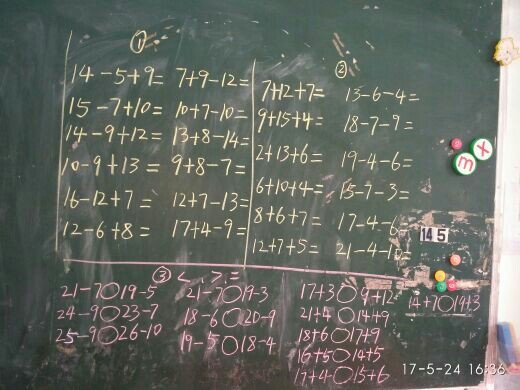 ①
14-5+9= 7+9-12=
15-7+10= 10+7-10=
14-9+12= 13+8-14=
10-9+13= 9+8-7=
16-12+7= 12+7-13=
12-6+8= 17+4-9=
②
7+12+7= 13-6-4=
9+15+4= 18-7-9=
2+13+6= 19-4-6=
6+10+4= 15-7-3=
8+6+7= 17-4-6
12+7+5= 21-4-10=
③ < > =
21-7○19-5 21-7○19-3
24-9○23-7 18-6○20-9
25-9○26-10 19-5○18-4
17+3○9+12 14+7○19+3
21+4○14+9
18+6○17+9
16+5○14+5
17+4○15+6
145
m x
17-5-24 16:36